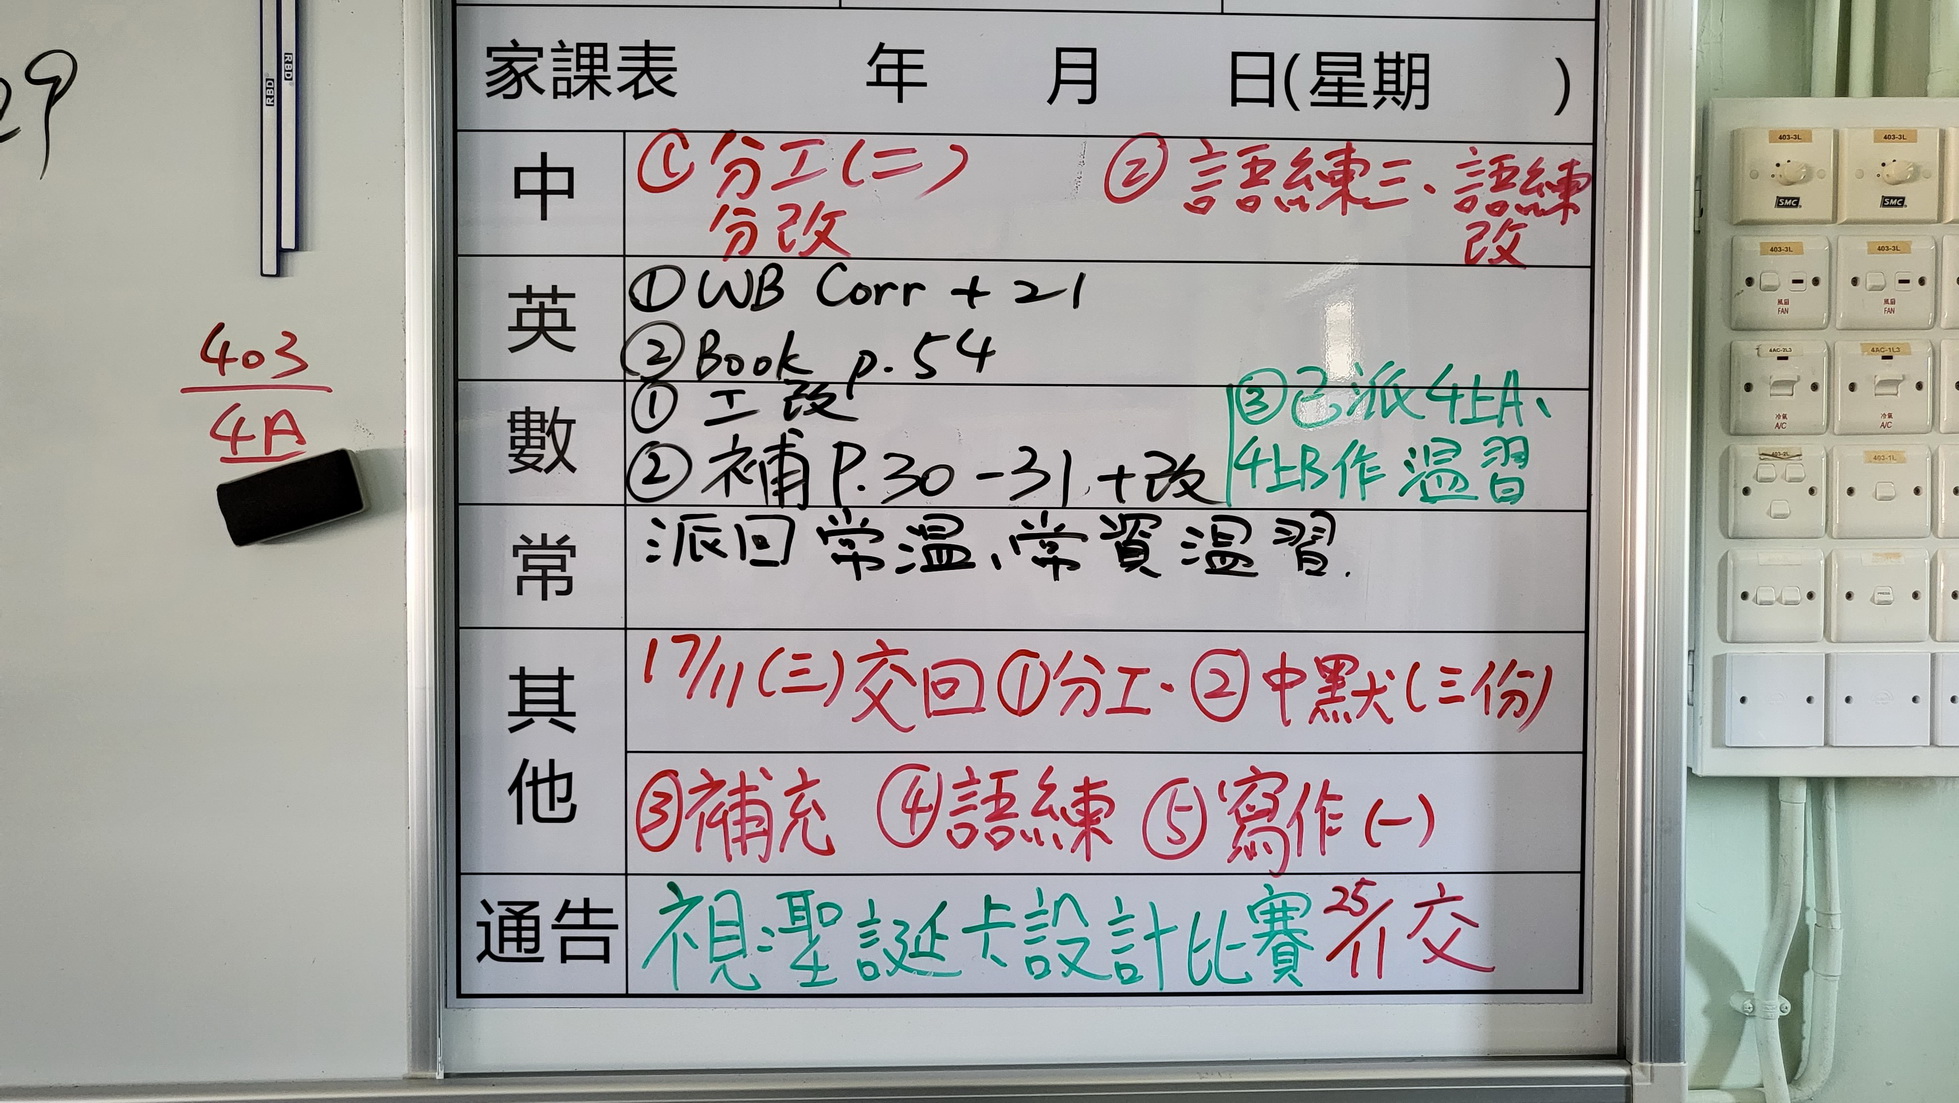 29
RBD
RBD
403
4A
家課表 年 月 日(星期 )
中
①分工(二) ②語練三、語練
分改 改
英
①WB Corr + 21
②Book p.54
數
①工改
②補P.30-31+改
③已派4上A、
4上B作溫習
常
派回常溫、常資溫習.
其他
17/11(三)交回①分工、②中默(三份)
③補充 ④語練 ⑤寫作(一)
通告
視:聖誕卡設計比賽 25/11交
403-3L
403-3L
SMC
SMC
403-3L
403-3L
風扇
FAN
風扇
FAN
4AC-2L3
4AC-1L3
冷氣
A/C
冷氣
A/C
403-1L